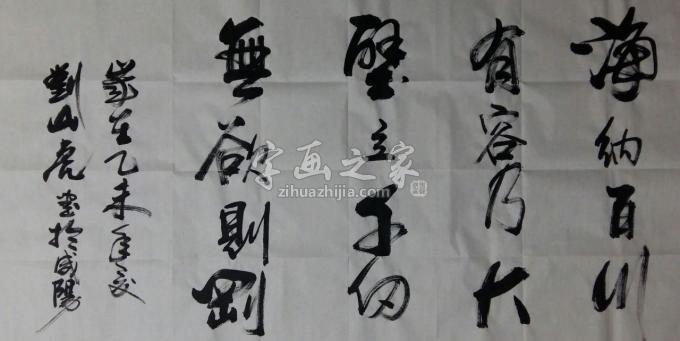 海納百川
有容乃大
壁立千仞
無欲則剛
歲在乙未年
劉山虎書於咸陽
字画之家
zihuazhijia.com